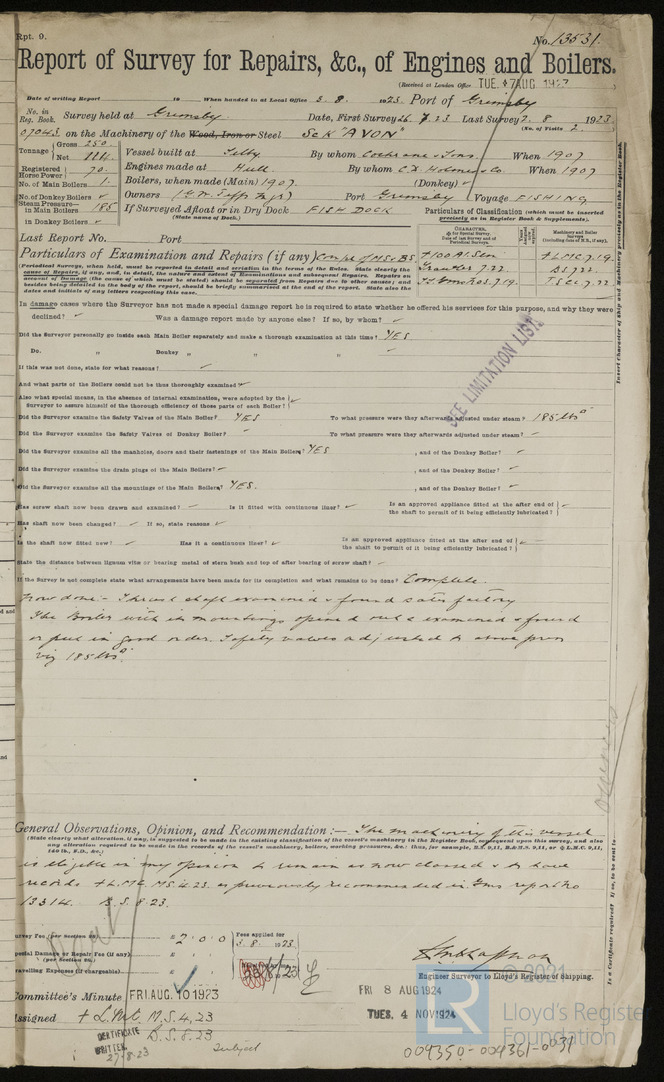 Rpt. 9.
No. 13531.
Report of Survey for Repairs, &c., of Engines and Boilers.
(Received at London Office TUE. 7 AUG 1923
Date of writing Report 19 When handed in at Local Office 3. 8. 1923 Port of Grimsby
No. in Reg. Book. Survey held at Grimsby Date, First Survey 26. 7. 23 Last Survey 2. 8 1923
(No. of Visits 2.
07043 on the Machinery of the Wood, Iron or Steel ScK "AVON"
Tonnage Gross 250 Net 114
Vessel built at Selby By whom Cochrane & Sons. When 1907
Registered Horse Power 70. Engines made at Hull By whom C.D. Holmes & Co. When 1907
No. of Main Boilers 1. Boilers, when made (Main) 1907. (Donkey) ✓
No. of Donkey Boilers ✓ Owners Port Grimsby Voyage FISHING
Steam Pressure— in Main Boilers 185 If Surveyed Afloat or in Dry Dock FISH DOCK
(State name of Dock.)
in Donkey Boilers ✓
Particulars of Classification (which must be inserted precisely as in Register Book & Supplements).
Last Report No. Port
CHARACTER, Date of last Survey and of Periodical Surveys.
Machinery and Boiler Surveys (including date of N.B., if any).
+100A1. Stm Trawler 7.22
+LMC 7.19.
BS 7.22
TS 7.22
Particulars of Examination and Repairs (if any) Compn of MS & BS.
(Periodical Surveys, when held, must be reported in detail and seriatim in the terms of the Rules. State clearly the
cause of Repairs, if any, and, in detail, the nature and extent of Examinations and subsequent Repairs. Repairs on
account of Damage (the cause of which must be stated) should be separated from Repairs due to other causes; and
besides being detailed in the body of the report, should be briefly summarised at the end of the report. State also the
dates and initials of any letters respecting this case.
In damage cases where the Surveyor has not made a special damage report he is required to state whether he offered his services for this purpose, and why they were
declined? ✓ Was a damage report made by anyone else? If so, by whom? ✓
Did the Surveyor personally go inside each Main Boiler separately and make a thorough examination at this time? YES
Do. " Donkey " " " ✓
If this was not done, state for what reasons? ✓
SEE LIMITATION LIST
And what parts of the Boilers could not be thoroughly examined ✓
Also what special means, in the absence of internal examination, were adopted by the
Surveyor to assure himself of the thorough efficiency of those parts of each Boiler? ✓
Did the Surveyor examine the Safety Valves of the Main Boiler? YES To what pressure were they afterwards adjusted under steam? 185 lbs□"
Did the Surveyor examine the Safety Valves of Donkey Boiler? ✓ To what pressure were they afterwards adjusted under steam? ✓
Did the Surveyor examine all the manholes, doors and their fastenings of the Main Boilers? YES , and of the Donkey Boiler? ✓
Did the Surveyor examine the drain plugs of the Main Boilers? ✓ , and of the Donkey Boiler? ✓
Did the Surveyor examine all the mountings of the Main Boilers? YES. , and of the Donkey Boiler? ✓
Has screw shaft now been drawn and examined? ✓ Is it fitted with continuous liner? ✓ Is an approved appliance fitted at the after end of
the shaft to permit of it being efficiently lubricated? ✓
Has shaft now been changed? ✓ If so, state reasons ✓
Is the shaft now fitted new? ✓ Has it a continuous liner? ✓ Is an approved appliance fitted at the after end of
the shaft to permit of it being efficiently lubricated? ✓
State the distance between lignum vitæ or bearing metal of stern bush and top of after bearing of screw shaft? ✓
If the Survey is not complete state what arrangements have been made for its completion and what remains to be done? Complete.
Now done:- Thrust shaft examined & found satisfactory
The Boiler with its mountings opened out & examined & found
or put in good order. Safety valves adjusted to above press
viz 185 lbs□"
General Observations, Opinion, and Recommendation :— The machinery of this vessel
(State clearly what alteration, if any, is suggested to be made in the existing classification of the vessel's machinery in the Register Book, consequent upon this survey, and also
any alteration required to be made in the records of the vessel's machinery, boilers, working pressures, &c.: thus, for example, B.S. 9,11, B.&M.S. 9,11, or L.M.C. 9,11,
140 lb., F.D., &c.)
is eligible in my opinion to remain as now classed & to have
records +L.M.C. MS. 4.23. as previously recommended in Gms report No
13314. B.S. 8.23.
Survey Fee (per Section 29) £ 2 : 0 : 0
Fees applied for 3. 8. 1923
Special Damage or Repair Fee (if any) (per Section 29.) £
Travelling Expenses (if chargeable) £
Engineer Surveyor to Lloyd's Register of Shipping.
Committee's Minute FRI. AUG. 10 1923
FRI 8 AUG 1924
TUES. 4 NOV 1924
Assigned + LMC. M.S. 4,23
B.S. 8.23
CERTIFICATE WRITTEN. 27-8-23
Subject
© 2021
LR Lloyd's Register Foundation
004350-004361-0031
Insert Character of Ship and Machinery precisely as in the Register Book.
Is a Certificate required? If so, to be sent to